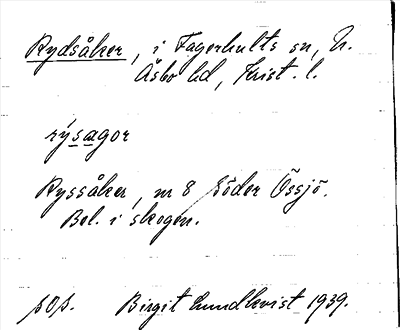 Rydsåker, i Fagerhults sn, N.
Åsbo hd, Krist. l.
rýsagor
Ryssåker, nr 8 Söder Össjö.
Bel. i skogen.
pop. Birgit Lundkvist 1939.